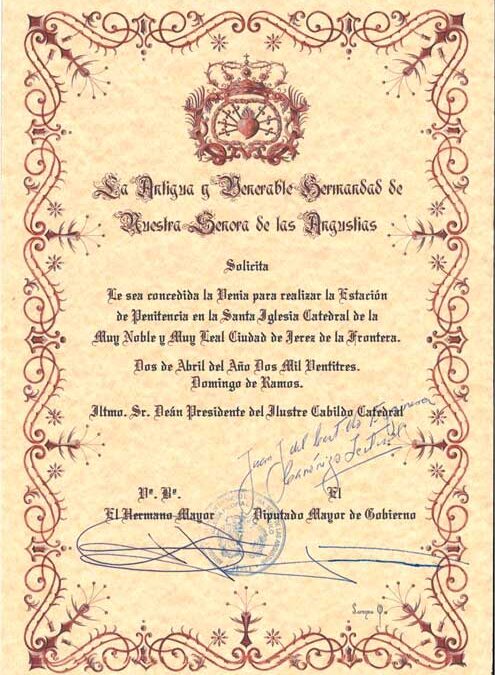 La Antigua y Venerable Hermandad de
Nuestra Senora de las Angustias
Solicita
Le sea concedida la Venia para realizar la Estación
de Penitencia en la Santa Iglesia Catedral de la
Muy Noble y Muy Leal Ciudad de Jerez de la Frontera.
Dos de Abril del Año Dos Mil Ventitres.
Domingo de Ramos.
Iltmo. Sr. Deán Presidente del Ilustre Cabildo Catedral
Juan J del
Canónigo
Vº. Bº.
El
El Hermano Mayor
Diputado Mayor de Gobierno